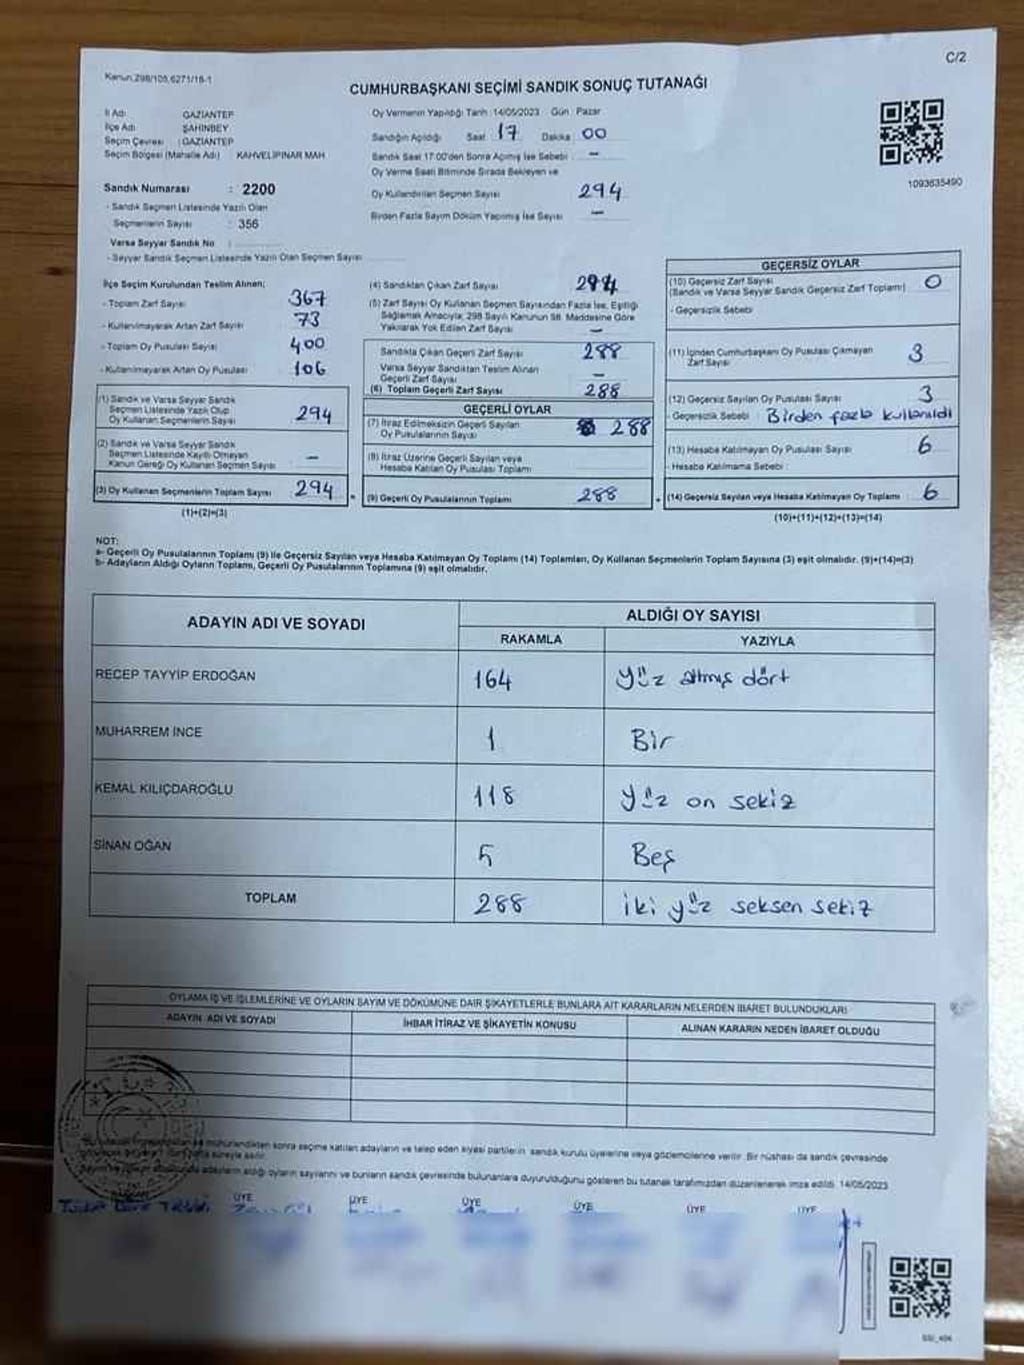 Kanun,298/105,6271/18-1
C/2
CUMHURBAŞKANI SEÇİMİ SANDIK SONUÇ TUTANAĞI
İl Adı : GAZİANTEP
İlçe Adı : ŞAHİNBEY
Seçim Çevresi : GAZİANTEP
Seçim Bölgesi (Mahalle Adı) KAHVELİPINAR MAH
Sandık Numarası : 2200
- Sandık Seçmen Listesinde Yazılı Olan
Seçmenlerin Sayısı : 356
Varsa Seyyar Sandık No :
- Seyyar Sandık Seçmen Listesinde Yazılı Olan Seçmen Sayısı
Oy Vermenin Yapıldığı Tarih :14/05/2023 Gün : Pazar
Sandığın Açıldığı Saat 17 Dakika : 00
Sandık Saat 17:00'den Sonra Açılmış İse Sebebi : -
Oy Verme Saati Bitiminde Sırada Bekleyen ve
Oy Kullandırılan Seçmen Sayısı 294
Birden Fazla Sayım Döküm Yapılmış İse Sayısı -
1093635490
İlçe Seçim Kurulundan Teslim Alınan;
- Toplam Zarf Sayısı 367
- Kullanılmayarak Artan Zarf Sayısı 73
- Toplam Oy Pusulası Sayısı 400
- Kullanılmayarak Artan Oy Pusulası 106
(1) Sandık ve Varsa Seyyar Sandık
Seçmen Listesinde Yazılı Olup
Oy Kullanan Seçmenlerin Sayısı 294
(2) Sandık ve Varsa Seyyar Sandık
Seçmen Listesinde Kayıtlı Olmayan
Kanun Gereği Oy Kullanan Seçmen Sayısı -
(3) Oy Kullanan Seçmenlerin Toplam Sayısı 294
(1)+(2)=(3)
(4) Sandıktan Çıkan Zarf Sayısı 294
(5) Zarf Sayısı Oy Kullanan Seçmen Sayısından Fazla İse, Eşitliği
Sağlamak Amacıyla; 298 Sayılı Kanunun 98. Maddesine Göre
Yakılarak Yok Edilen Zarf Sayısı -
Sandıkta Çıkan Geçerli Zarf Sayısı 288
Varsa Seyyar Sandıktan Teslim Alınan
Geçerli Zarf Sayısı -
(6) Toplam Geçerli Zarf Sayısı 288
GEÇERLİ OYLAR
(7) İtiraz Edilmeksizin Geçerli Sayılan
Oy Pusulalarının Sayısı 288
(8) İtiraz Üzerine Geçerli Sayılan veya
Hesaba Katılan Oy Pusulası Toplamı
(9) Geçerli Oy Pusulalarının Toplamı 288
GEÇERSİZ OYLAR
(10) Geçersiz Zarf Sayısı
(Sandık ve Varsa Seyyar Sandık Geçersiz Zarf Toplamı) 0
- Geçersizlik Sebebi
(11) İçinden Cumhurbaşkanı Oy Pusulası Çıkmayan
Zarf Sayısı 3
(12) Geçersiz Sayılan Oy Pusulası Sayısı 3
- Geçersizlik Sebebi : Birden fazla kullanıldı
(13) Hesaba Katılmayan Oy Pusulası Sayısı 6
- Hesaba Katılmama Sebebi :
(14) Geçersiz Sayılan veya Hesaba Katılmayan Oy Toplamı 6
(10)+(11)+(12)+(13)=(14)
NOT:
a- Geçerli Oy Pusulalarının Toplamı (9) ile Geçersiz Sayılan veya Hesaba Katılmayan Oy Toplamı (14) Toplamları, Oy Kullanan Seçmenlerin Toplam Sayısına (3) eşit olmalıdır. (9)+(14)=(3)
b- Adayların Aldığı Oyların Toplamı, Geçerli Oy Pusulalarının Toplamına (9) eşit olmalıdır.
ADAYIN ADI VE SOYADI ALDIĞI OY SAYISI
RAKAMLA YAZIYLA
RECEP TAYYİP ERDOĞAN 164 Yüz altmış dört
MUHARREM İNCE 1 Bir
KEMAL KILIÇDAROĞLU 118 Yüz on sekiz
SİNAN OĞAN 5 Beş
TOPLAM 288 İki yüz seksen sekiz
OYLAMA İŞ VE İŞLEMLERİNE VE OYLARIN SAYIM VE DÖKÜMÜNE DAİR ŞİKAYETLERLE BUNLARA AİT KARARLARIN NELERDEN İBARET BULUNDUKLARI
ADAYIN ADI VE SOYADI İHBAR İTİRAZ VE ŞİKAYETİN KONUSU ALINAN KARARIN NEDEN İBARET OLDUĞU
T.C.
mühürlendikten sonra seçime katılan adayların ve talep eden siyasi partilerin sandık kurulu üyelerine veya gözlemcilerine verilir. Bir nüshası da sandık çevresinde
süreyle asılır.
adayların aldığı oyların sayılarını ve bunların sandık çevresinde bulunanlara duyurulduğunu gösteren bu tutanak tarafımızdan düzenlenerek imza edildi. 14/05/2023
ÜYE ÜYE ÜYE ÜYE ÜYE ÜYE